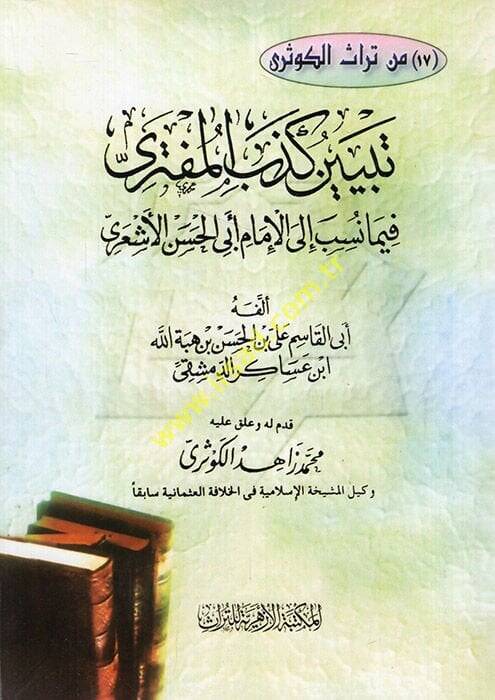 (١٧) من تراث الكوثرى
تبيين كذب المفترى
فيما نسب إلى الإمام أبي الحسن الأشعرى
ألفه
أبى القاسم على بن الحسن بن هبة الله
ابن عساكر الدمشقى
قدم له وعلق عليه
محمد زاهد الكوثرى
وكيل المشيخة الإسلامية فى الخلافة العثمانية سابقاً
المكتبة الأزهرية للتراث